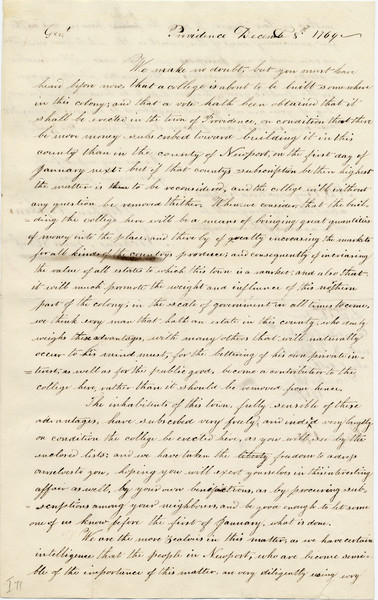 Gen^l Providence December 8^th 1769
We make no doubt, but you must have
heard before now, that a college is about to be built somewhere
in this colony; and that a vote hath been obtained that it
shall be erected in the town of Providence, on condition that there
be more money subscribed toward building it in this
county than in the county of Newport, on the first day of
January next: but if that county's subscription be then highest
the matter is then to be reconsidered, and the college will without
any question be removed thither. When we consider, that the buil-
ding the college here will be a means of bringing great quantities
of money into the place, and thereby of greatly increasing the markets
for all kinds of the country's produce; and consequently of increasing
the value of all estates to which this town is a market; and also that
it will much promote the weight and influence of this northern
part of the colony in the scale of government in all times to come,
we think every man that hath an estate in this county, who duly
weighs these advantages, with many others that will naturally
occur to his mind must, for the bettering of his own private in-
=terest, as well as for the public good, become a contributor to the
college here, rather than it should be removed from hence.
The inhabitants of this town, fully sensible of these
advantages, have subscribed very freely, and indeed very largely
on condition the college be erected here, as you will see by the
enclosed lists: and we have taken the liberty freedom to address
ourselves to you, hoping you will exert yourselves in this interesting
affair as well, by your own subscriptions, as by procuring sub-
=scriptions among your neighbours, and be good enough to let some
one of us know before the first of January, what is done.
We are the more zealous in this matter, as we have certain
intelligence that the people in Newport, who are become sensi-
ble of the importance of this matter, are very diligently using every